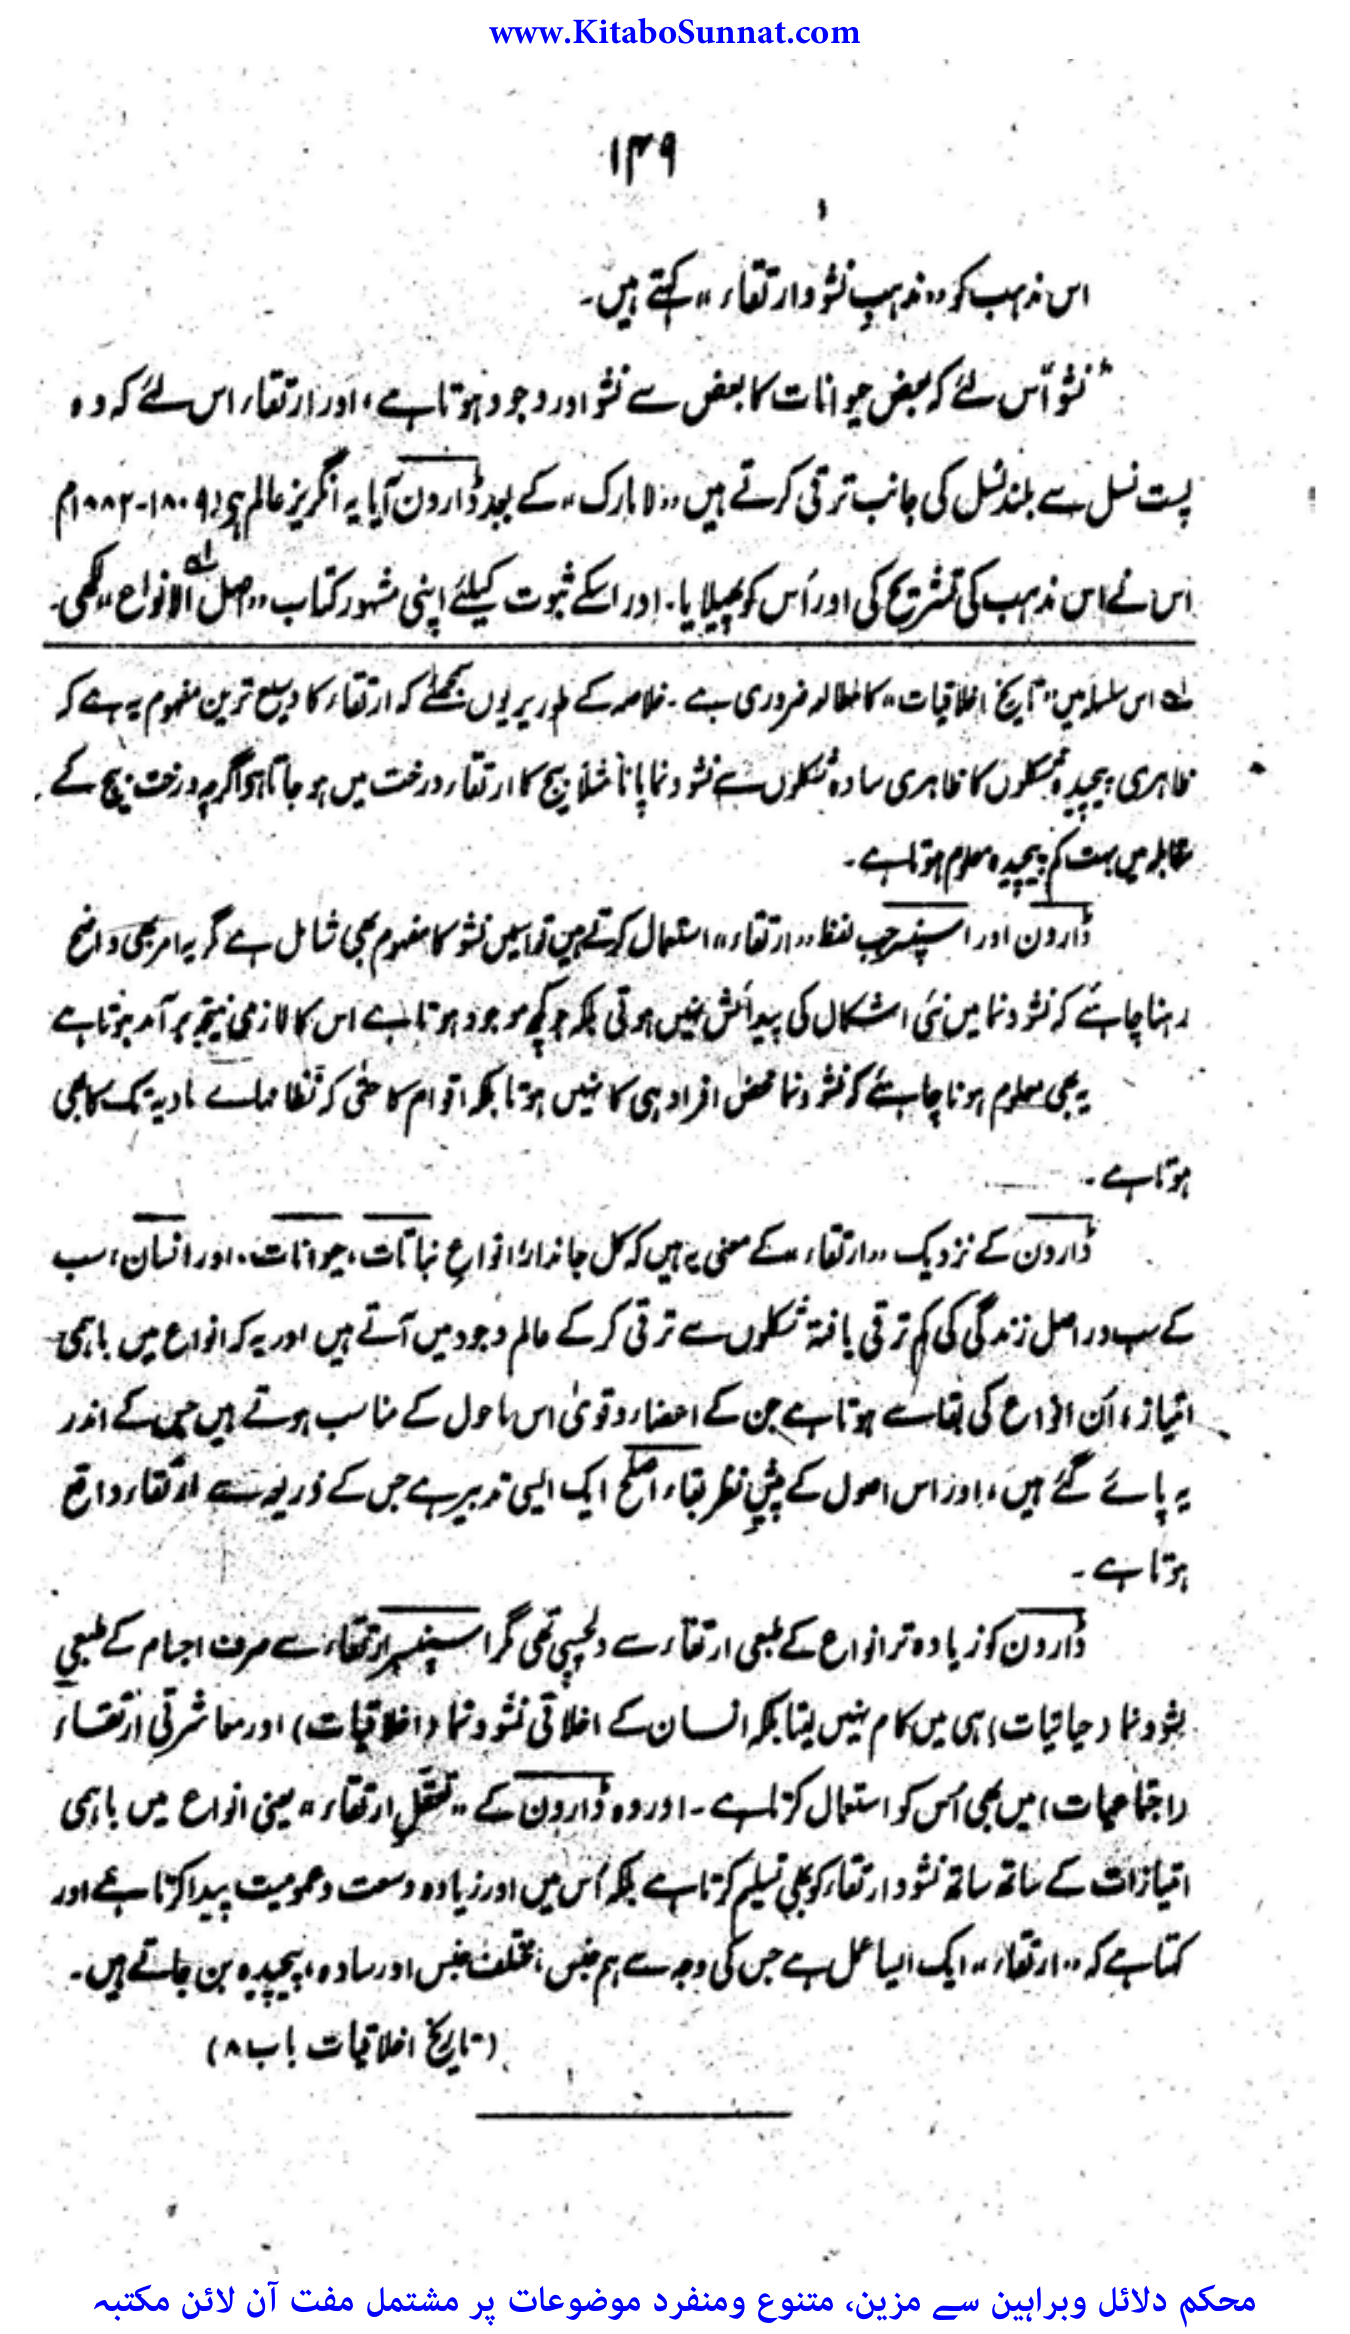 www.KitaboSunnat.com
۱۴۹
اس مذہب کو "مذہبِ نشو و ارتقاء" کہتے ہیں۔
"نشو" اس لئے کہ بعض حیوانات کا بعض سے نشو اور وجود ہوتا ہے، اور ارتقاء اس لئے کہ وہ
پست نسل سے بلند نسل کی جانب ترقی کرتے ہیں "لامارک" کے بعد ڈارون آیا یہ انگریز عالم ہے (۱۸۰۹-۱۸۸۲م
اس نے اس مذہب کی تشریح کی اور اُس کو پھیلایا۔ اور اسکے ثبوت کیلئے اپنی مشہور کتاب "اصل الانواع" لکھی۔
لہ اس سلسلہ میں "تاریخ اخلاقیات" کا مطالعہ ضروری ہے۔ خلاصہ کے طور پر یوں سمجھئے کہ ارتقاء کا وسیع ترین مفہوم یہ ہے کہ
ظاہری پیچیدہ شکلوں کا ظاہری سادہ شکلوں سے نشو و نما پانا مثلاً بیج کا ارتقاء درخت میں ہو جاتا ہے اگرچہ درخت بیج کے
مقابلہ میں بہت کم پیچیدہ معلوم ہوتا ہے۔
ڈارون اور اسپنسر جب لفظ "ارتقاء" استعمال کرتے ہیں تو اسمیں نشو کا مفہوم بھی شامل ہے مگر یہ امر بھی واضح
رہنا چاہئے کہ نشو و نما میں نئی اشکال کی پیدائش نہیں ہوتی بلکہ جو کچھ موجود ہوتا ہے اس کا لازمی نتیجہ برآمد ہوتا ہے
یہ بھی معلوم ہونا چاہئے کہ نشو و نما محض افراد ہی کا نہیں ہوتا بلکہ اقوام کا حتٰی کہ نظامہائے مادیہ تک کا بھی
ہوتا ہے۔
ڈارون کے نزدیک "ارتقاء" کے معنی یہ ہیں کہ کل جاندار، انواعِ نباتات، حیوانات، اور انسان، سب
کے سب دراصل زندگی کی کم ترقی یافتہ شکلوں سے ترقی کر کے عالم وجود میں آتے ہیں اور یہ کہ انواع میں باہمی
امتیاز، اُن انواع کی بقا سے ہوتا ہے جن کے اعضاء و قویٰ اس ماحول کے مناسب ہوتے ہیں جس کے اندر
یہ پائے گئے ہیں، اور اس اصول کے پیشِ نظر بقاء اصلح ایک ایسی تدبیر ہے جس کے ذریعہ سے ارتقاء واقع
ہوتا ہے۔
ڈارون کو زیادہ تر انواع کے طبعی ارتقاء سے دلچسپی تھی مگر اسپنسر ارتقاء سے صرف اجسام کے طبعی
نشو و نما (حیاتیات) ہی میں کام نہیں لیتا بلکہ انسان کے اخلاقی نشو و نما (اخلاقیات) اور معاشرتی ارتقاء
(اجتماعیات) میں بھی اُس کو استعمال کرتا ہے۔ اور وہ ڈارون کے ارتقاء" یعنی انواع میں باہمی
امتیازات کے ساتھ ساتھ نشو و ارتقاء کو بھی تسلیم کرتا ہے بلکہ اُس میں اور زیادہ وسعت و عمومیت پیدا کرتا ہے اور
کہتا ہے کہ "ارتقاء" ایک ایسا عمل ہے جس کی وجہ سے ہم جنس، مختلف جنس اور سادہ، پیچیدہ بن جاتے ہیں۔
(تاریخ اخلاقیات باب ۸)
محکم دلائل وبراہین سے مزین، متنوع ومنفرد موضوعات پر مشتمل مفت آن لائن مکتبہ